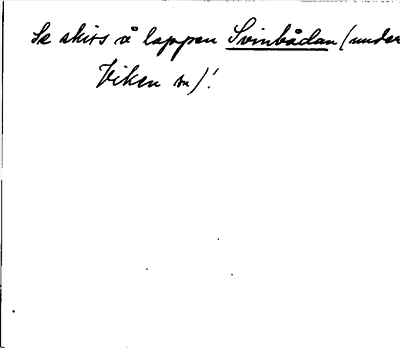 Se skiss å lappen Svinbådan (under
Viken sn)!